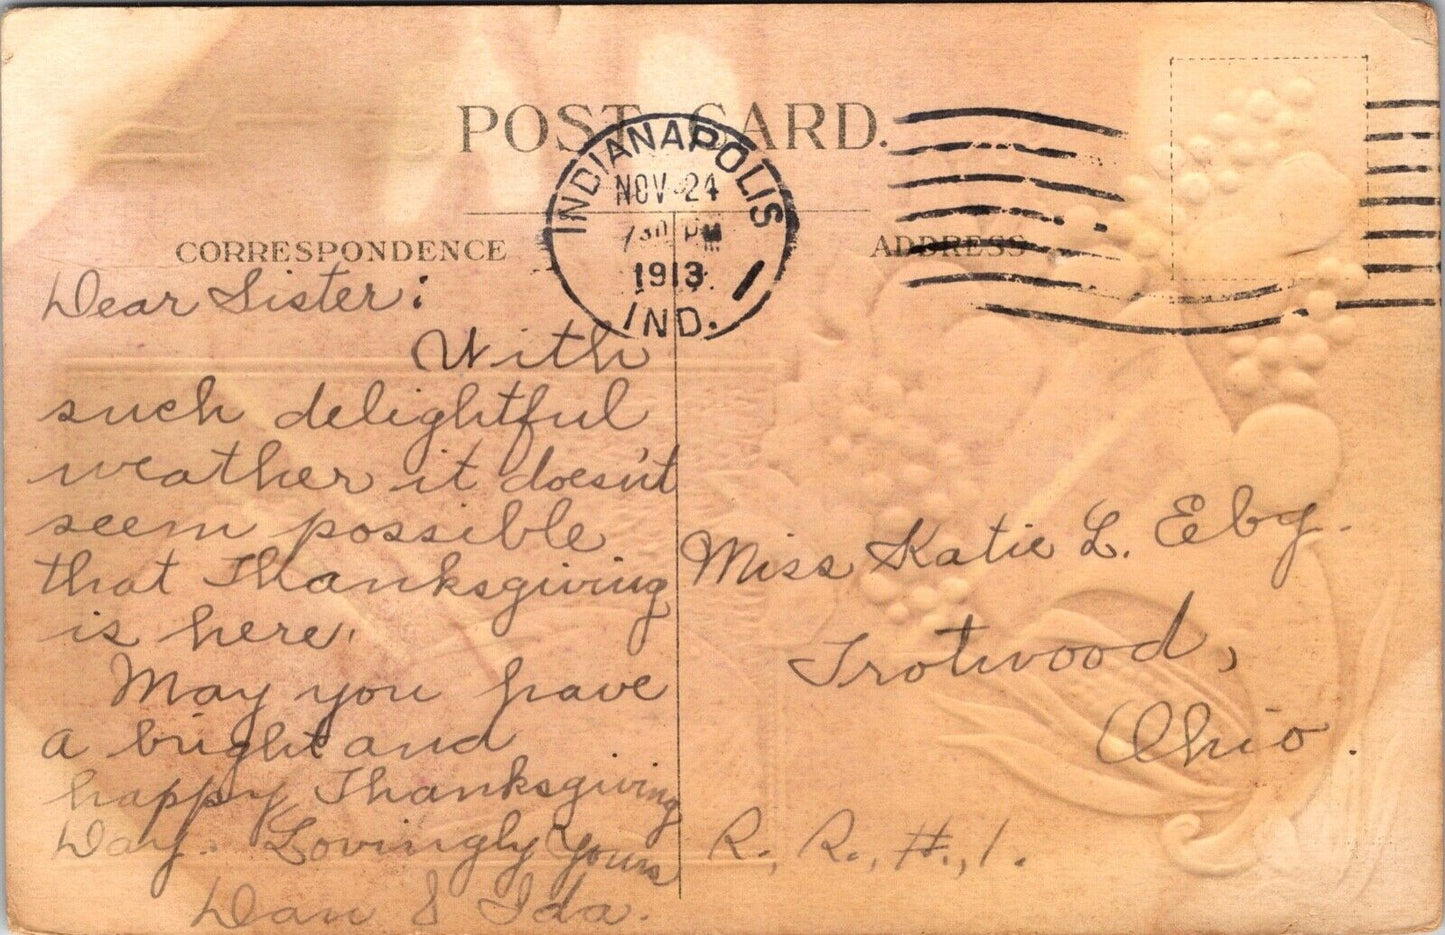 POST CARD.
INDIANAPOLIS
NOV 24
730 PM
1913
IND.
CORRESPONDENCE
ADDRESS
Dear Sister:
With
such delightful
weather it doesn't
seem possible
that Thanksgiving
is here.
May you have
a bright and
happy Thanksgiving
Day. Lovingly yours
Dan & Ida.
Miss Katie L. Eby.
Trotwood,
Ohio.
R. R. #. 1.